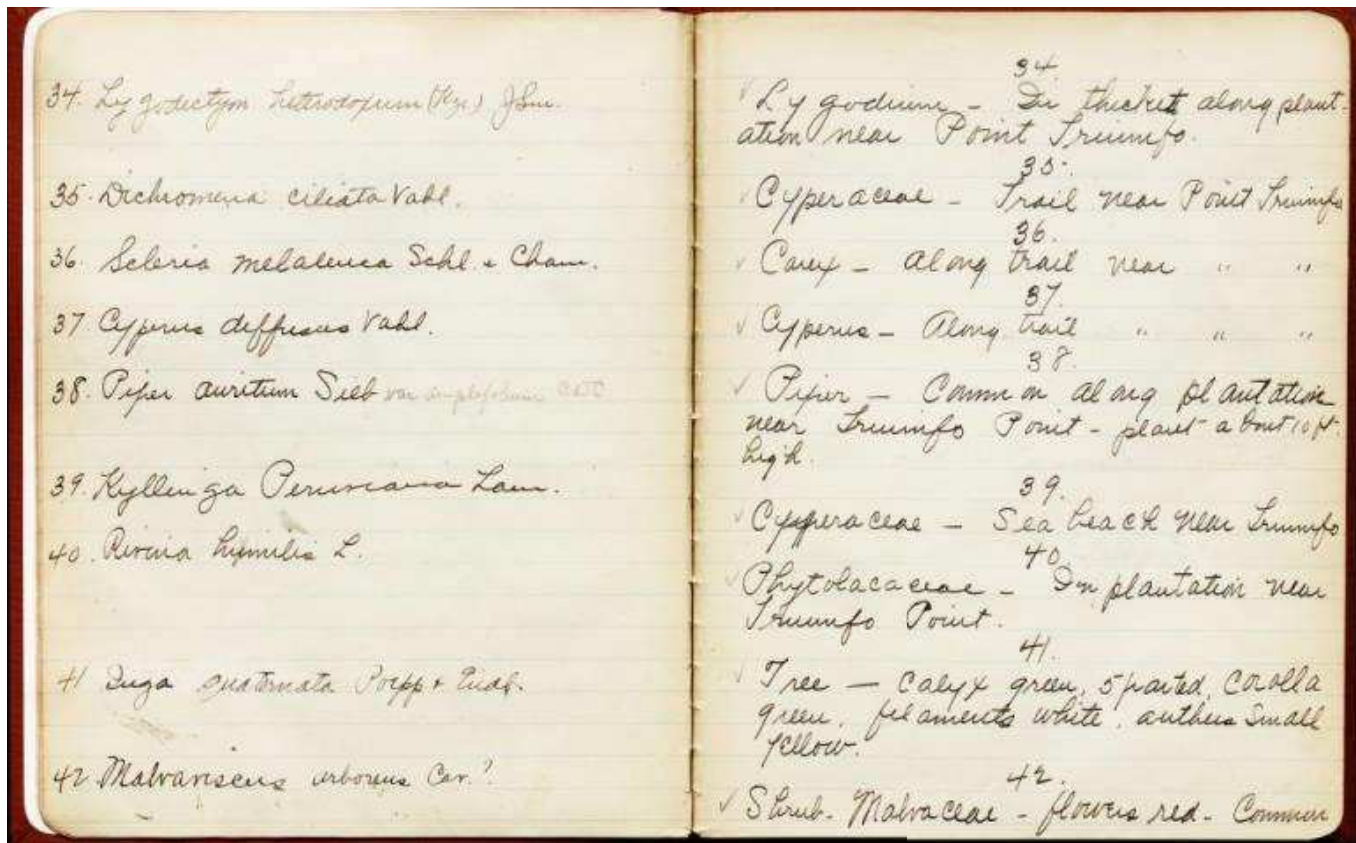 34. Lygodictyon heterodoxum (Kze.) J.Sm.
35. Dichromena ciliata Vahl.
36. Scleria melaleuca Schl. & Cham.
37. Cyperus diffusus Vahl.
38. Piper auritum Sieb var amplifolium CDC
39. Kyllinga Peruviana Lam.
40. Rivina humilis L.
41 Inga quaternata Poepp & Endl.
42 Malvaviscus arboreus Cav.?
34
✓ Lygodium - In thicket along plant-
ation near Point Triumfo.
35.
✓ Cyperaceae - Trail near Point Triumfo
36.
✓ Carex - Along trail near " "
37.
✓ Cyperus - Along trail " " "
38
✓ Piper - Common along plantation
near Triumfo Point - plant about 10 ft.
high.
39.
✓ Cyperaceae - Sea beach near Triumfo
40
✓ Phytolacaceae - In plantation near
Triumfo Point.
41.
✓ Tree - Calyx green, 5 parted, corolla
green, filaments white, anthers small
yellow.
42.
✓ Shrub. Malvaceae - flowers red - Common